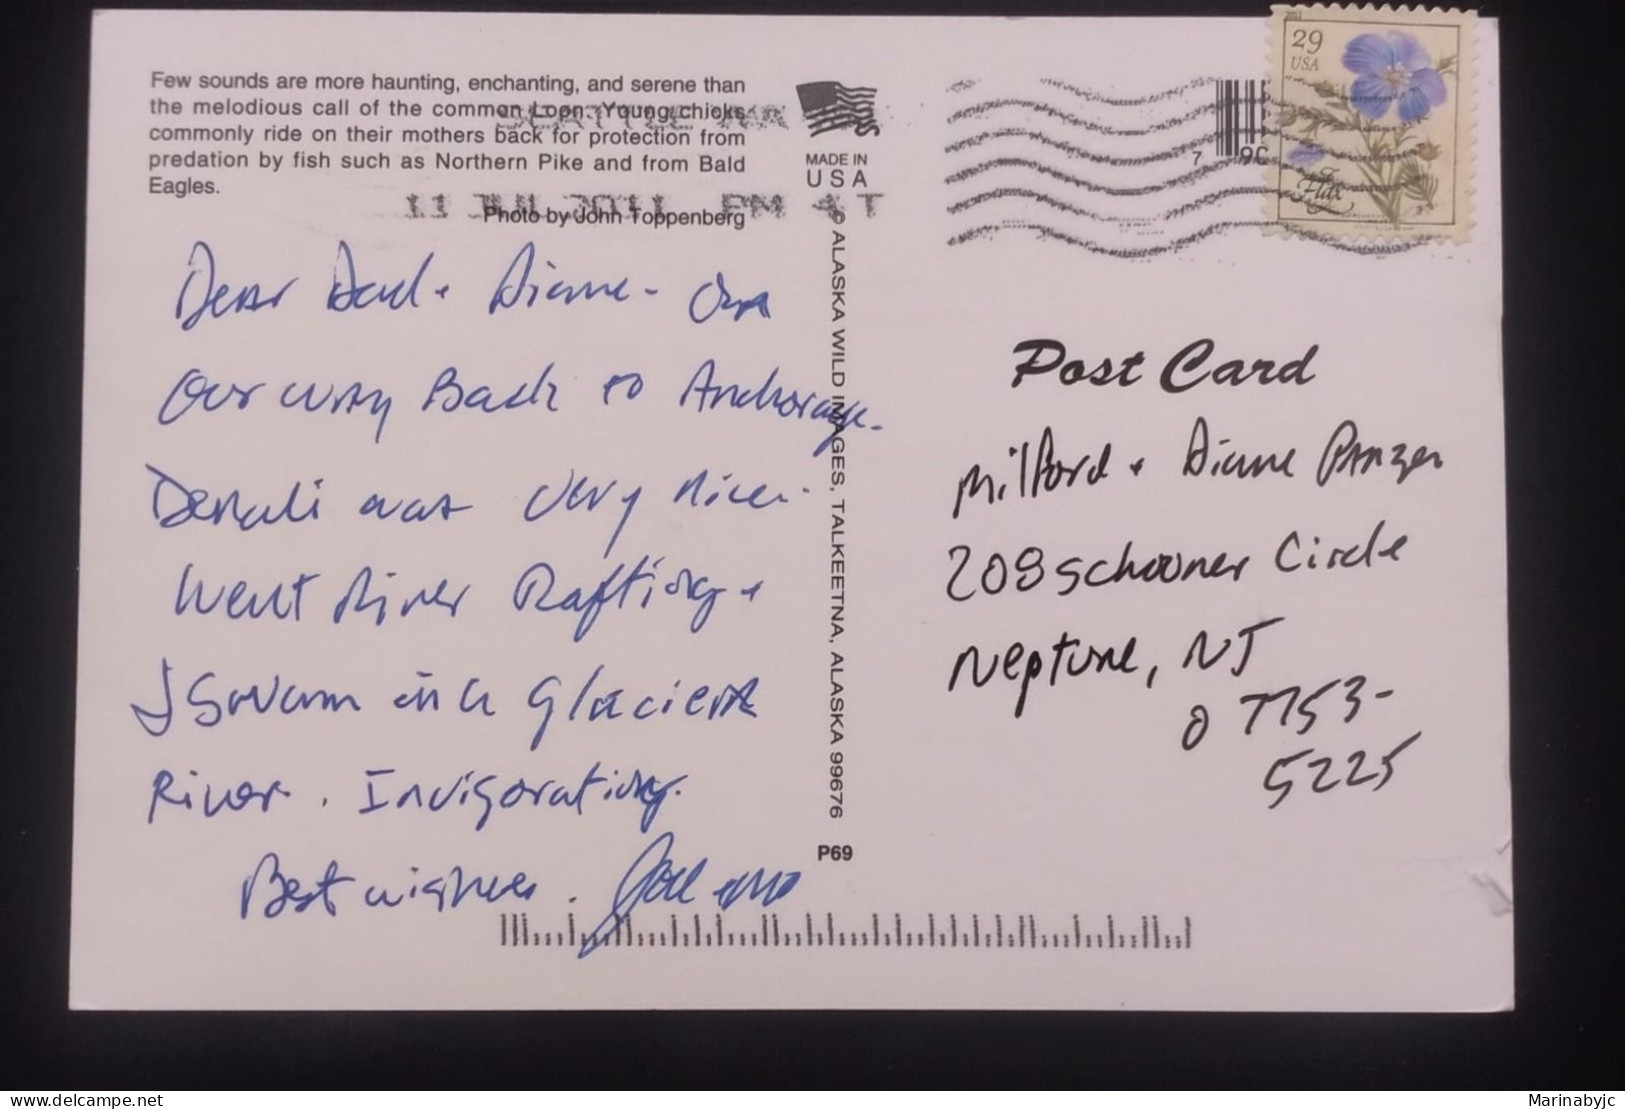 Few sounds are more haunting, enchanting, and serene than
the melodious call of the common Loon. Young chicks
commonly ride on their mothers back for protection from
predation by fish such as Northern Pike and from Bald
Eagles.
Photo by John Toppenberg
11 JUL 2011 PM
MADE IN
USA
© ALASKA WILD IMAGES, TALKEETNA, ALASKA 99676
P69
29
USA
Flax
7
Dear Dad + Diane - On
Our way Back to Anchorage.
Denali was very nice.
Went River Rafting +
I Swam in a Glacier
River. Invigorating.
Best wishes.
Post Card
Milford + Diane Panzer
208 Schooner Circle
Neptune, NJ
07753-
5225
Marinabyjc